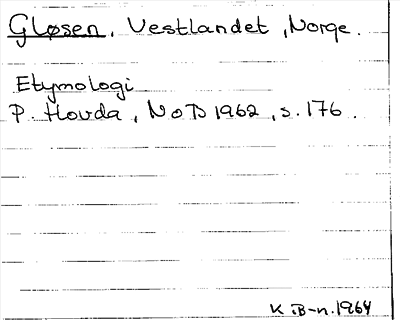 Gløsen, Vestlandet, Norge.
Etymologi
P. Hovda, NoB 1962, s. 176.
K iB-n. 1964